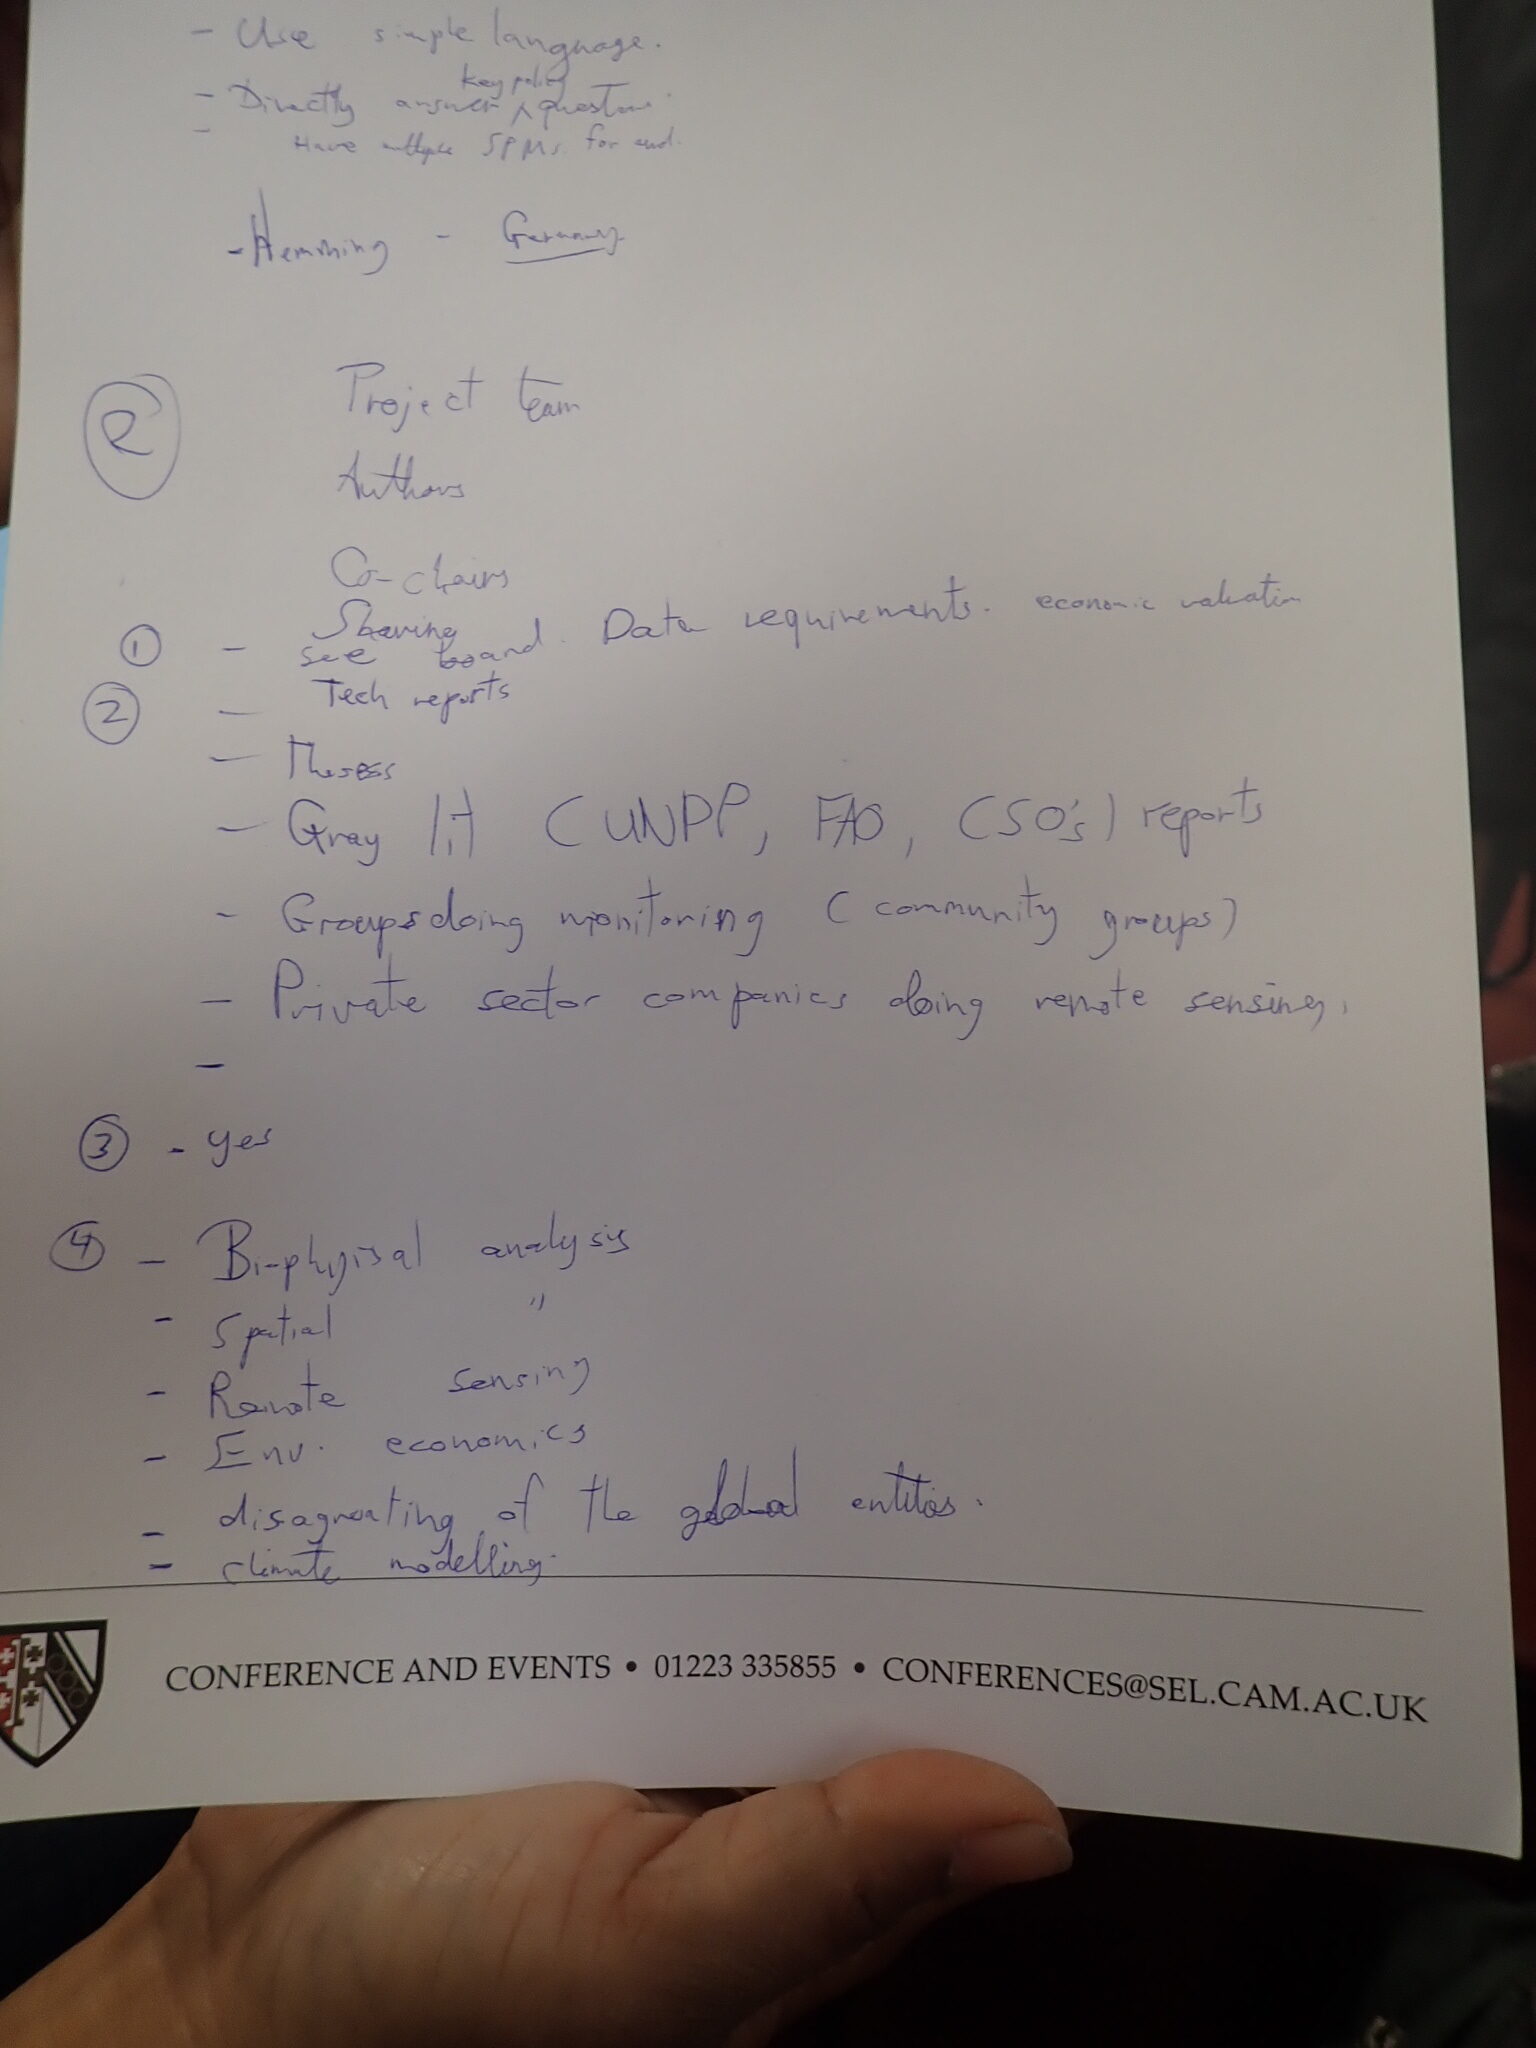 - Use simple language.
key policy
- Directly answer ^ question.
-
Have multiple SPMs. for
- Hemming - Germany
R
Project team
Authors
Co-chairs
Sharing
① - see board. Data requirements. economic valuation
② - Tech reports
- Theses
- Gray lit (UNPP, FAO, CSO's) reports
- Groups doing monitoring (community groups)
- Private sector companies doing remote sensing.
-
③ - yes
④ - Bi-physisal analysis
- Spatial "
- Remote sensing
- Env. economics
- of the global entities.
- climate modelling.
CONFERENCE AND EVENTS • 01223 335855 • CONFERENCES@SEL.CAM.AC.UK